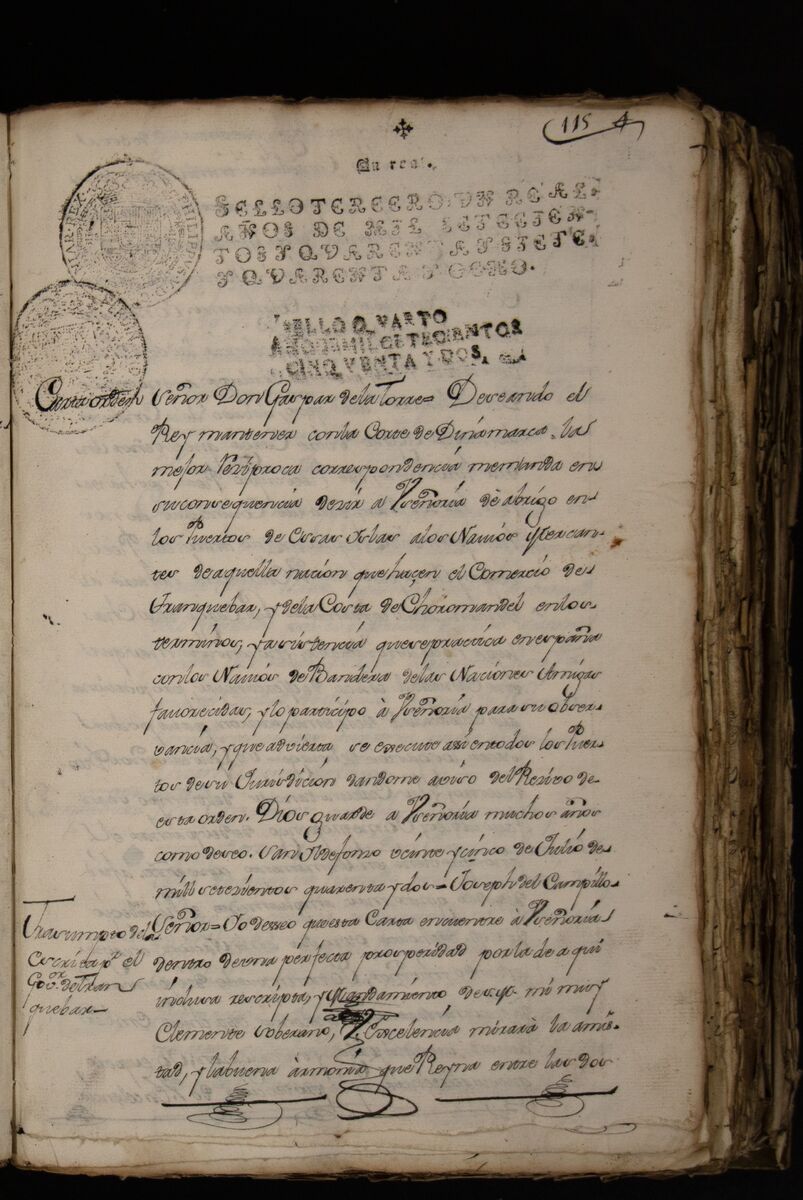 115
Un real.
SELLO TERCERO, UN REAL,
AÑOS DE MIL SETECIEN-
TOS Y QVARENTA Y SIETE,
Y QVARENTA Y OCHO.
SELLO QVARTO
AÑO DE MIL SETECIENTOS
CINQVENTA Y DOS,
Carta orden
Señor Don Gaspar de la Torre= Deseando el
Rey mantener con la Corte de Dinamarca, la
mejor reziproca correspondencia me manda en
su consequencia dezir a Vseñoria dè abrigo en
los Puertos de Essas Yslas a los Navios Mercan-
tes de aquella nacion que haçen el Comercio de
Tranquebar, y de la Costa de Choromandel en los
terminos, y asistencia que se practica en españa
con los Navios de Bandera de las Naciones Amigas
favorecidas, y lo participo à Vseñoria para su obser-
vancia, y que advierta se execute assi en todos los Puer-
tos de su Jurisdicion dandome aviso del Rezivo de
esta orden. Dios guarde a Vseñoria muchos años
como deseo. San Yldefonso veinte y cinco de Julio de
mill setezientos quarenta y dos= Joseph del Campillo
Trasumpto del
Señor= Yo desseo que esta Carta encuentre à Vseñoria
escrito pr. el
dentro de una perfecta prosperidad por la de aqui
Gor. de Tran
inclusa rescripta, y Mandamiento de mi muy
quebar
Clemente Soberano, V. Excelencia mirarà la amis-
tad, y la buena àrmonia que Reyna entre las dos